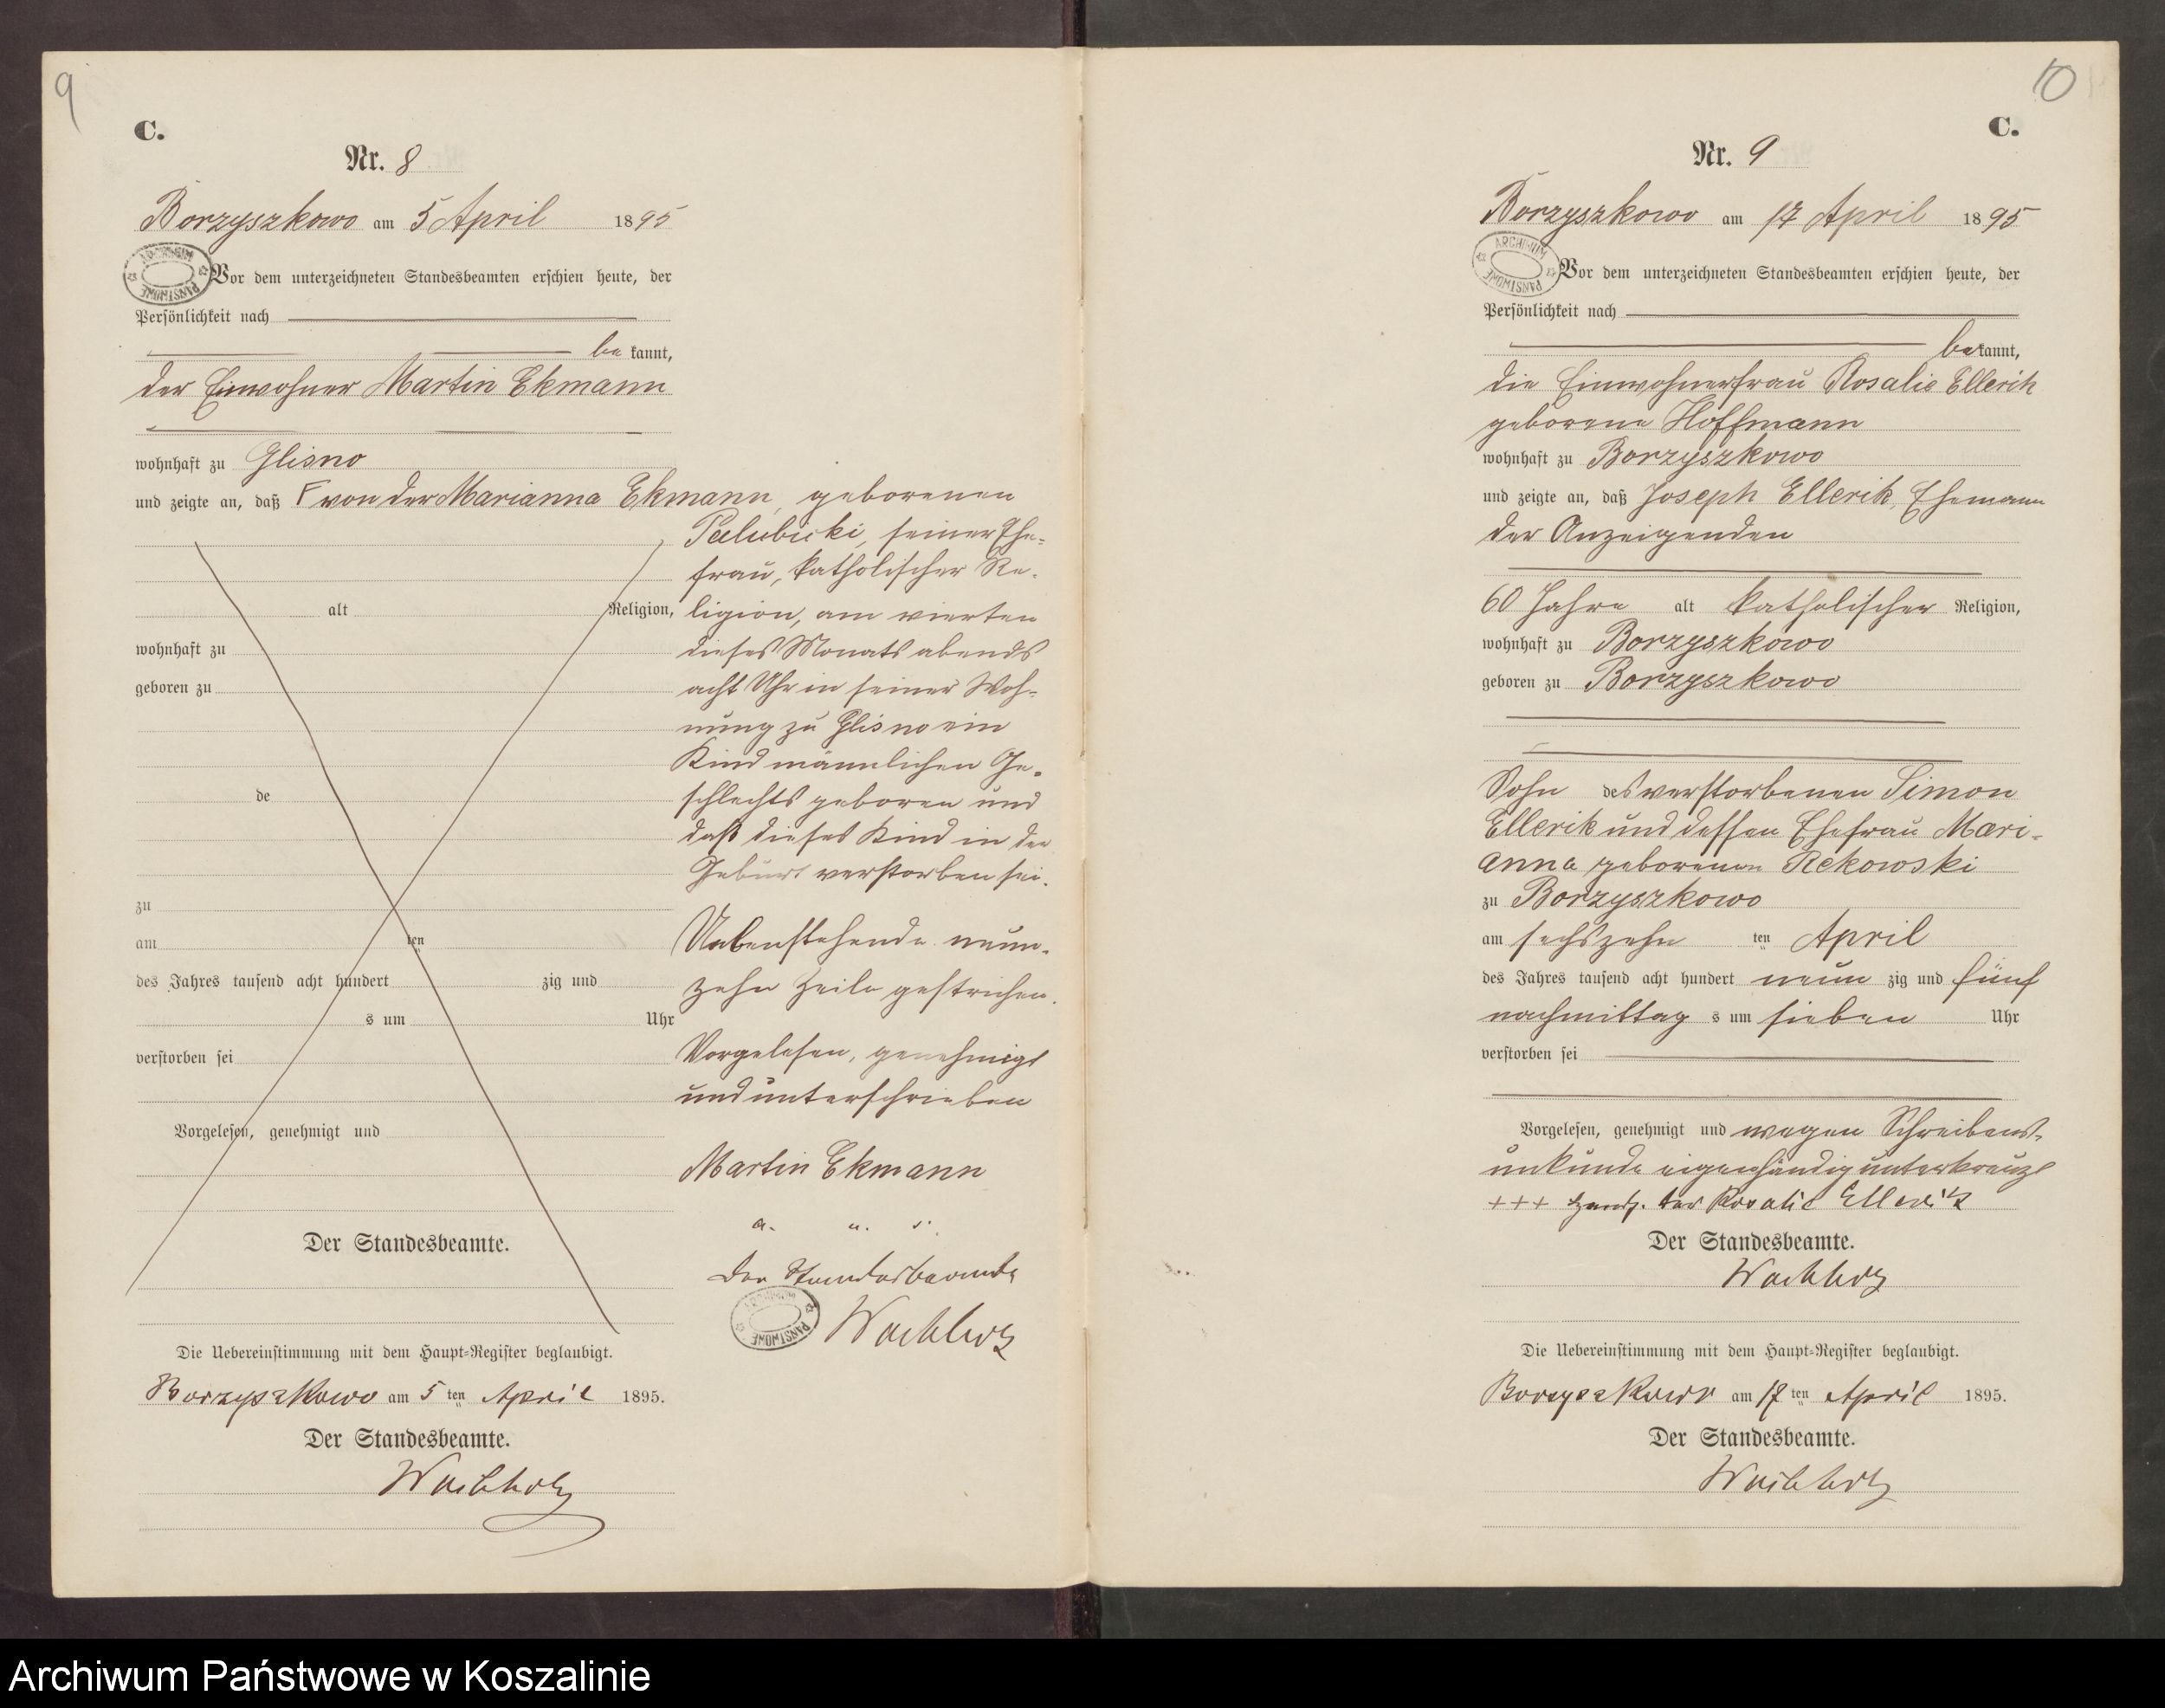 9
C.
Nr. 8
Borzyszkowo am 5 April 1895
ARCHIWUM PAŃSTWOWE
Vor dem unterzeichneten Standesbeamten erschien heute, der
Persönlichkeit nach
be kannt,
der Einwohner Martin Ekmann
wohnhaft zu Glisno
und zeigte an, daß von der Marianna Ekmann, geborenen
Palubicki, seiner Ehe-
frau, katholischer Re-
alt Religion, ligion, am vierten
wohnhaft zu dieses Monats abends
geboren zu acht Uhr in seiner Woh-
nung zu Glisno ein
Kind männlichen Ge-
de schlechts geboren und
daß dieses Kind in der
Geburt verstorben sei.
zu
am ten Nebenstehende neun-
des Jahres tausend acht hundert zig und zehn Zeile gestrichen.
s um Uhr
verstorben sei Vorgelesen, genehmigt
und unterschrieben
Vorgelesen, genehmigt und
Martin Ekmann
a. u. s.
Der Standesbeamte.
Der Standesbeamte
ARCHIWUM PAŃSTWOWE
Wachholz
Die Uebereinstimmung mit dem Haupt-Register beglaubigt.
Borzyszkowo am 5 ten April 1895.
Der Standesbeamte.
Wachholz
10
C.
Nr. 9
Borzyszkowo am 17 April 1895
ARCHIWUM PAŃSTWOWE
Vor dem unterzeichneten Standesbeamten erschien heute, der
Persönlichkeit nach
bekannt,
die Einwohnerfrau Rosalie Ellerik
geborene Hoffmann
wohnhaft zu Borzyszkowo
und zeigte an, daß Joseph Ellerik, Ehemann
der Anzeigenden
60 Jahre alt katholischer Religion,
wohnhaft zu Borzyszkowo
geboren zu Borzyszkowo
Sohn des verstorbenen Simon
Ellerik und dessen Ehefrau Mari-
anna geborenen Rekowski
zu Borzyszkowo
am sechszehn ten April
des Jahres tausend acht hundert neun zig und fünf
nachmittag s um sieben Uhr
verstorben sei
Vorgelesen, genehmigt und wegen Schreibens-
unkunde eigenhändig unterkreuzt
+++ Handz. der Rosalie Ellerik
Der Standesbeamte.
Wachholz
Die Uebereinstimmung mit dem Haupt-Register beglaubigt.
Borzyszkowo am 17 ten April 1895.
Der Standesbeamte.
Wachholz
Archiwum Państwowe w Koszalinie